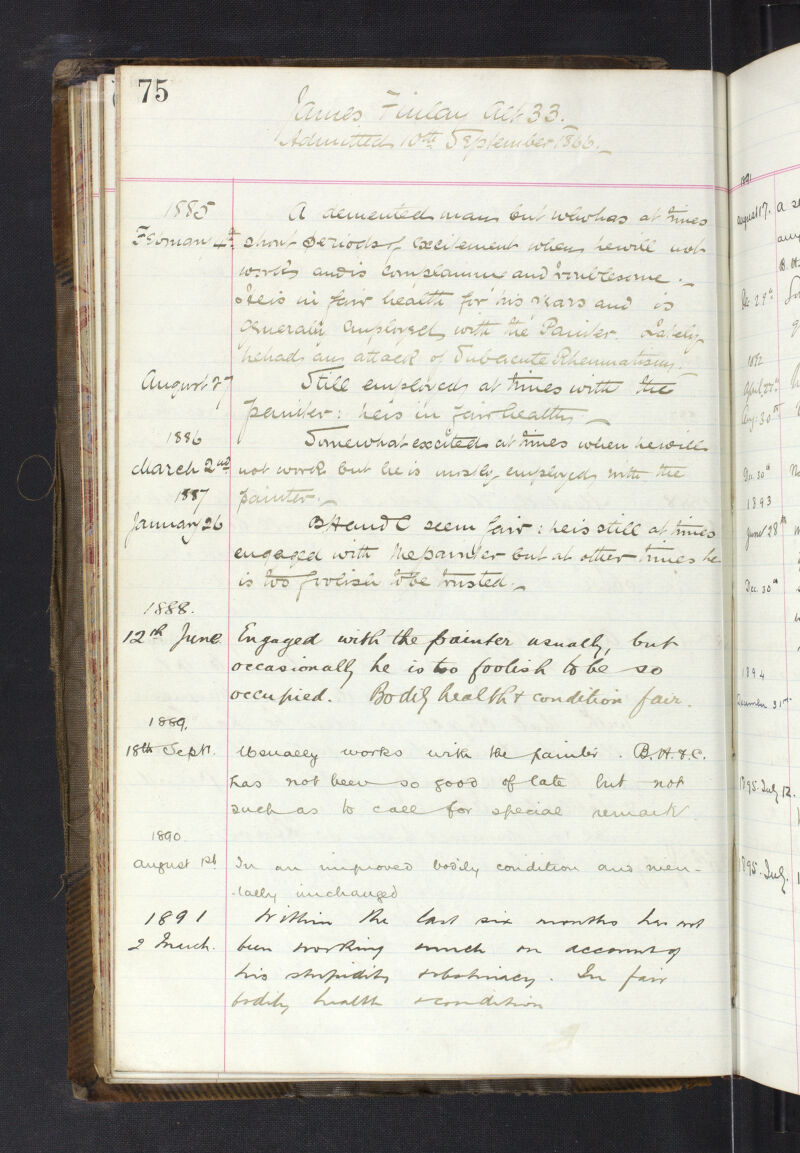 75
James Finlay Aet 33.
Admitted 10th September 1866.
1885
February 4th A demented man but who has at times
short periods of excitement when he will not
work and is complaining and troublesome.
He is in fair health for his years and is
generally employed with the Painter. Lately
he had an attack of Subacute Rheumatism.
August 27 Still employed at times with the
painter: he is in fair health
1886
March 2nd Somewhat excited at times when he will
not work but he is mostly employed with the
painter.
1887
January 26 BH and C seem fair: he is still at times
engaged with the painter but at other times he
is too foolish to be trusted.
1888.
12th June Engaged with the painter usually, but
occasionally he is too foolish to be so
occupied. Bodily health & condition fair.
1889.
18th Sept. Usually works with the painter. B.H.&C.
has not been so good of late but not
such as to call for special remark
1890.
August 1st In an improved bodily condition and men-
-tally unchanged
1891
2 March. Within the last six months has not
been working much on account of
his stupidity & obstinacy. In fair
bodily health & condition
1891
August 17. a
B. H.
Dec. 29th
1892
April
Aug. 30th
Dec. 30th
1893
June 28th
Dec. 30th
1894
31st
1895. July 12.
1895. July.